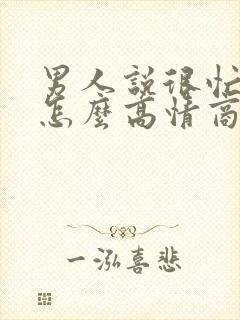 男人說很忙
怎麼高情商
一泓喜悲